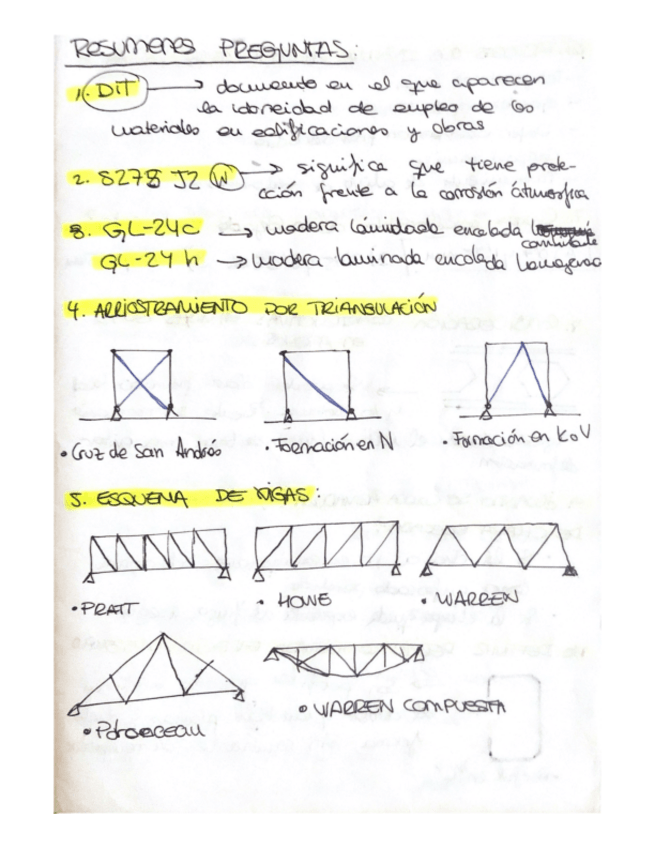 RESUMENES PREGUNTAS:
1. DIT → documento en el que aparecen
la idoneidad de empleo de los
materiales en edificaciones y obras
2. S275 J2 W → significa que tiene protec-
ción frente a la corrosión átmosfrica
3. GL-24c → madera láminada encolada
combinada
GL-24 h → madera laminada encolada homogenea
4. ARRIOSTRAMIENTO POR TRIANGULACIÓN
• Cruz de San Andres • Formación en N • Formación en K o V
5. ESQUEMA DE VIGAS:
• PRATT • HOWE • WARREN
• Polonceau • WARREN COMPUESTA